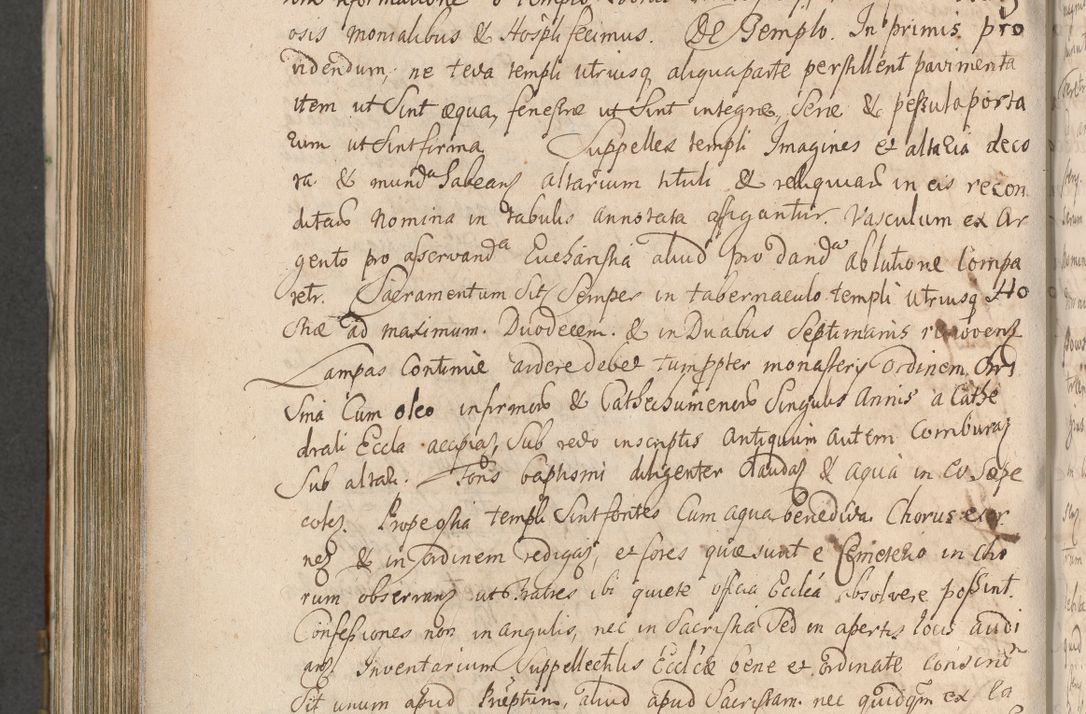 osis Monialibus & Hospli fecimus. De Templo. In primis pro
videndum, ne tecta templi utriusq aliqua parte perstillent pavimenta
item ut Sint æqua, fenestræ ut Sint integræ, Seræ & pessula porta
rum ut Sint firma. Suppellex templi Imagines et altaria deco
ra & munda habeant altarium tituli & reliquiarū in eis recon
ditarū Nomina in tabulis annotata affigantur. Vasculum ex Ar
gento pro asservanda Eucharistia aliud pro danda Ablutione Compa
retr. Sacramentum Sit Semper in tabernaculo templi utriusq Ho
stiæ ad maximum. Duodecem. & in Duabus Septimanis renovent
Lampas Continuè ardere debet tum ppter monastery Ordinem, Chri
Sma Cum oleo infirmorū & Cathechumenorū Singulis Annis a Cathe
drali Eccla accipiat, Sub redo inscriptis Antiquum Autem Comburat
Sub altari. Fons baptismi diligenter Claudat & aqua in eo Sæpe
colet. Prope ostia templi Sint fontes Cum aqua benedicta. Chorus
net & in ordinem redigat, et fores quæ sunt e Cemeterio in cho
rum observant ut Fratres ibi quiete officia Ecclæ absolvere possint.
Confessiones non in angulis, nec in Sacristia Sed in apertis locis audi
ant Inventarium Suppellectilis Ecclæ bene et ordinate
Sit unum apud aliud apud Sacristam. nec quidqm ex